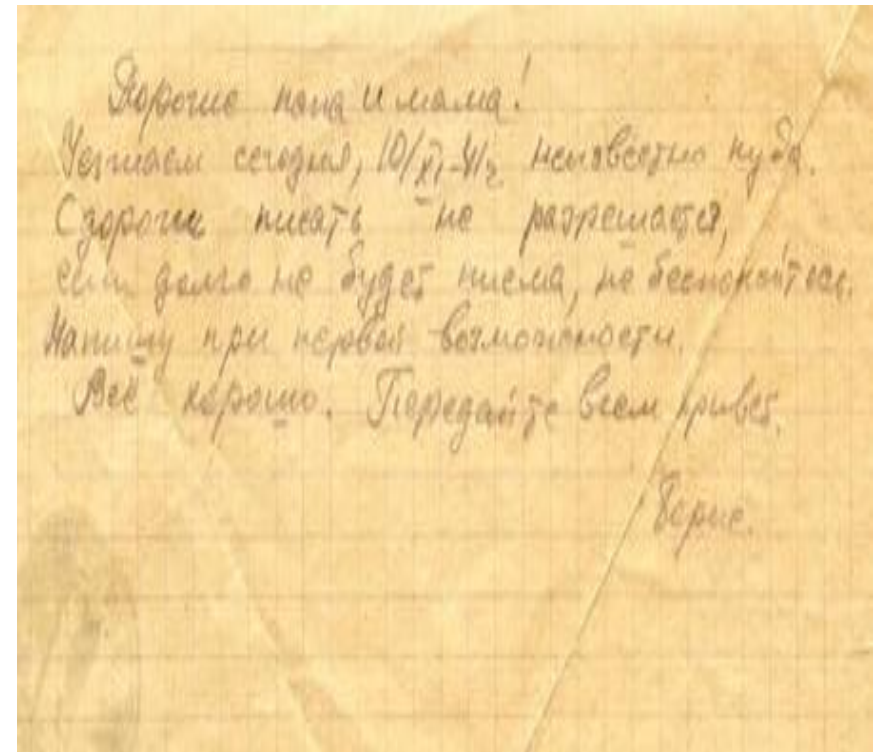 Дорогие папа и мама!
Уезжаем сегодня, 10/XI-41г, неизвестно куда.
С дороги писать не разрешается,
если долго не будет писма, не беспокойтесь.
Напишу при первой возможности.
Всё хорошо. Передайте всем привет.
Борис.